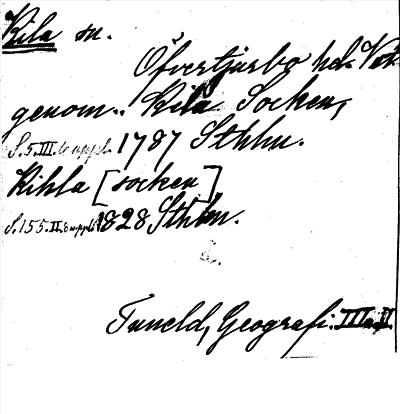 Kila sn.
Öfvertjurbo hd. Vm.
genom.. Kila Socken,
S. 5. III. 6 uppl. 1787 Sthlm.
Kihla [socken]
S. 155. II. 8 uppl. 1828 Sthlm.
Tuneld, Geografi. III a. II.